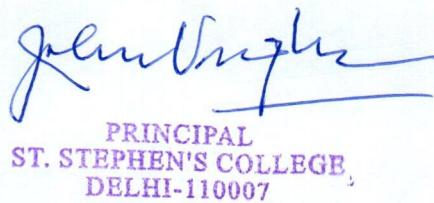 John Varghese
PRINCIPAL
ST. STEPHEN'S COLLEGE,
DELHI-110007